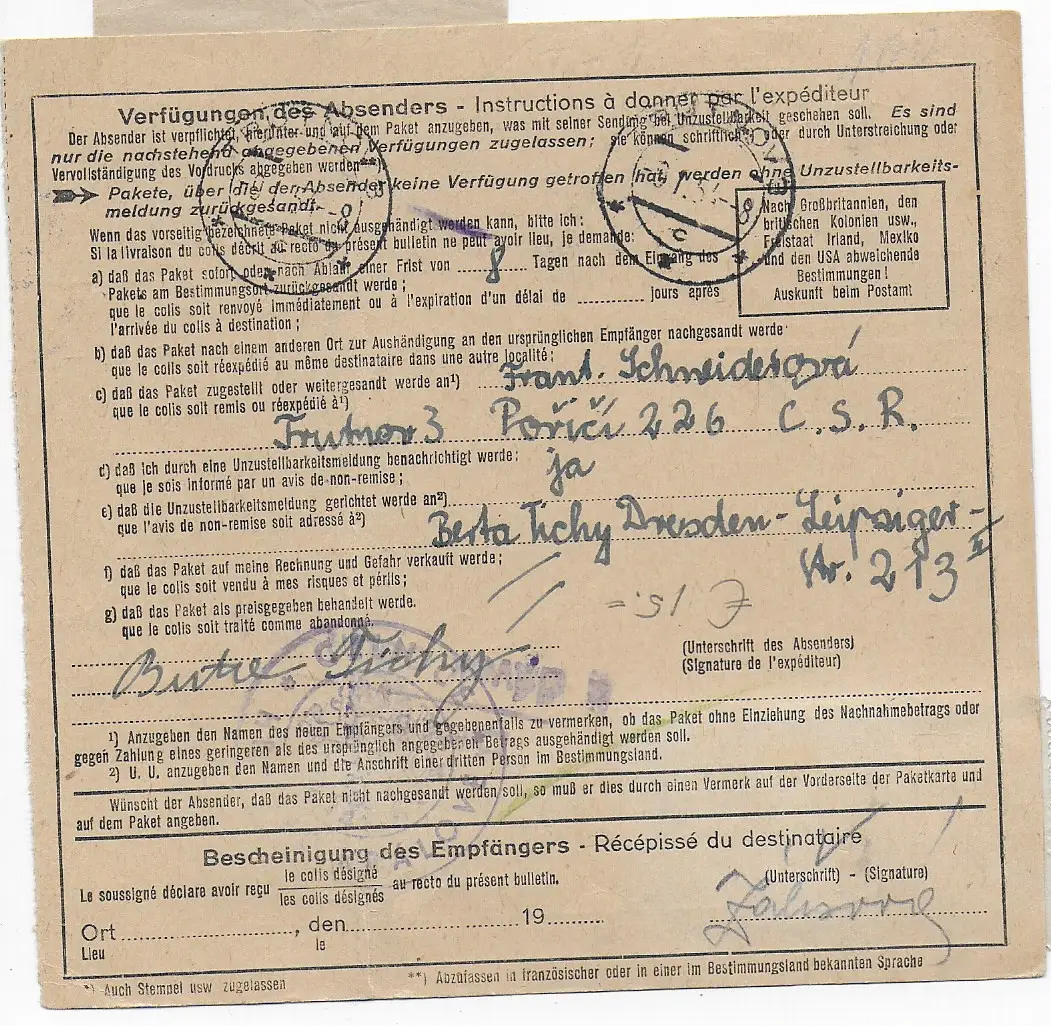 Verfügungen des Absenders - Instructions à donner par l'expéditeur
Der Absender ist verpflichtet, hierunter und auf dem Paket anzugeben, was mit seiner Sendung bei Unzustellbarkeit geschehen soll. Es sind
nur die nachstehend angegebenen Verfügungen zugelassen; sie können schriftlich*) oder durch Unterstreichung oder
Vervollständigung des Vordrucks abgegeben werden**)
Pakete, über die der Absender keine Verfügung getroffen hat, werden ohne Unzustellbarkeits-
meldung zurückgesandt.
Wenn das vorseitig bezeichnete Paket nicht ausgehändigt werden kann, bitte ich:
Si la livraison du colis décrit au recto du présent bulletin ne peut avoir lieu, je demande:
a) daß das Paket sofort oder nach Ablauf einer Frist von 8 Tagen nach dem Eingang des
Pakets am Bestimmungsort zurückgesandt werde;
que le colis soit renvoyé immédiatement ou à l'expiration d'un délai de jours après
l'arrivée du colis à destination;
Nach Großbritannien, den
britischen Kolonien usw.,
Freistaat Irland, Mexiko
und den USA abweichende
Bestimmungen!
Auskunft beim Postamt
b) daß das Paket nach einem anderen Ort zur Aushändigung an den ursprünglichen Empfänger nachgesandt werde
que le colis soit réexpédié au même destinataire dans une autre localité;
c) daß das Paket zugestellt oder weitergesandt werde an¹) Frant. Schneiderová
que le colis soit remis ou réexpédié à¹)
Trutnov 3 Poříčí 226 C.S.R.
d) daß ich durch eine Unzustellbarkeitsmeldung benachrichtigt werde; ja
que je sois informé par un avis de non-remise;
e) daß die Unzustellbarkeitsmeldung gerichtet werde an²)
que l'avis de non-remise soit adressé à²) Berta Tichy Dresden - Leipziger -
Str. 213 II
f) daß das Paket auf meine Rechnung und Gefahr verkauft werde;
que le colis soit vendu à mes risques et périls;
g) daß das Paket als preisgegeben behandelt werde.
que le colis soit traité comme abandonné.
Berta Tichy
(Unterschrift des Absenders)
(Signature de l'expéditeur)
¹) Anzugeben den Namen des neuen Empfängers und gegebenenfalls zu vermerken, ob das Paket ohne Einziehung des Nachnahmebetrags oder
gegen Zahlung eines geringeren als des ursprünglich angegebenen Betrags ausgehändigt werden soll.
²) U. U. anzugeben den Namen und die Anschrift einer dritten Person im Bestimmungsland.
Wünscht der Absender, daß das Paket nicht nachgesandt werden soll, so muß er dies durch einen Vermerk auf der Vorderseite der Paketkarte und
auf dem Paket angeben.
Bescheinigung des Empfängers - Récépissé du destinataire
Le soussigné déclare avoir reçu le colis désigné / les colis désignés au recto du présent bulletin.
(Unterschrift) - (Signature)
Ort, den 19
Lieu le
*) Auch Stempel usw zugelassen
**) Abzufassen in französischer oder in einer im Bestimmungsland bekannten Sprache